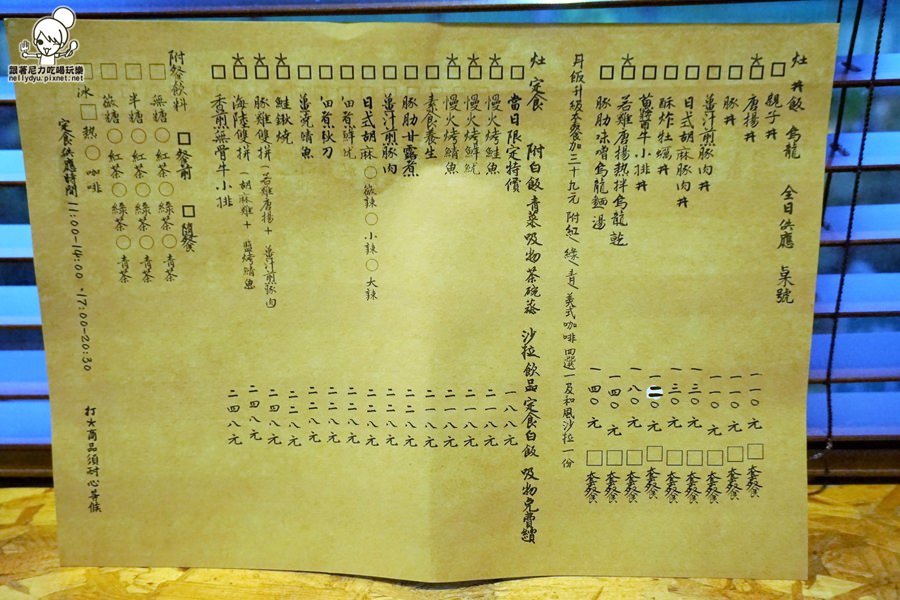 灶 丼飯 烏龍 全日供應 桌號
□ 親子丼 一一〇元 □套餐
☆□ 唐揚丼 一一〇元 □套餐
□ 豚丼 一一〇元 □套餐
□ 薑汁煎豚肉丼 一三〇元 □套餐
□ 日式胡麻豚肉丼 一三〇元 □套餐
□ 酥炸牡蠣丼
□ 蔥醬牛小排丼 一八〇元 □套餐
☆□ 若雞唐揚熱拌烏龍乾 一四〇元 □套餐
□ 豚肋味噌烏龍麵湯 一四〇元 □套餐
丼飯升級套餐加三十九元 附紅/綠/青/美式咖啡四選一及和風沙拉一份
灶 定食 附白飯青菜吸物茶碗蒸 沙拉飲品 定食白飯 吸物免費續
□ 當日限定特價 一八八元
☆□ 慢火烤鮭魚 二二八元
☆□ 慢火烤鯖魚 二一八元
□ 素食養生 二一八元
□ 豚肋甘露煮 二二八元
□ 薑汁煎豚肉 二二八元
□ 日式胡麻 〇微辣〇小辣〇大辣 二二八元
□ 薑燒鯖魚 二二八元
☆□ 鮭鍬燒 二四八元
☆□ 豚雞雙拼(若雞唐揚+薑汁煎豚肉 二四八元
☆□ 海陸雙拼(胡麻雞+鹽烤鯖魚 二四八元
□ 香煎無骨牛小排 二四八元
附餐飲料 □餐前 □隨餐
□ 無糖〇紅茶〇綠茶〇青茶
□ 半糖〇紅茶〇綠茶〇青茶
□ 微糖〇紅茶〇綠茶〇青茶
□冰□熱〇咖啡
定食供應時間 11:00-14:00·17:00-20:30 打☆商品須耐心等候
跟著尼力吃喝玩樂
nellydyu.pixnet.net